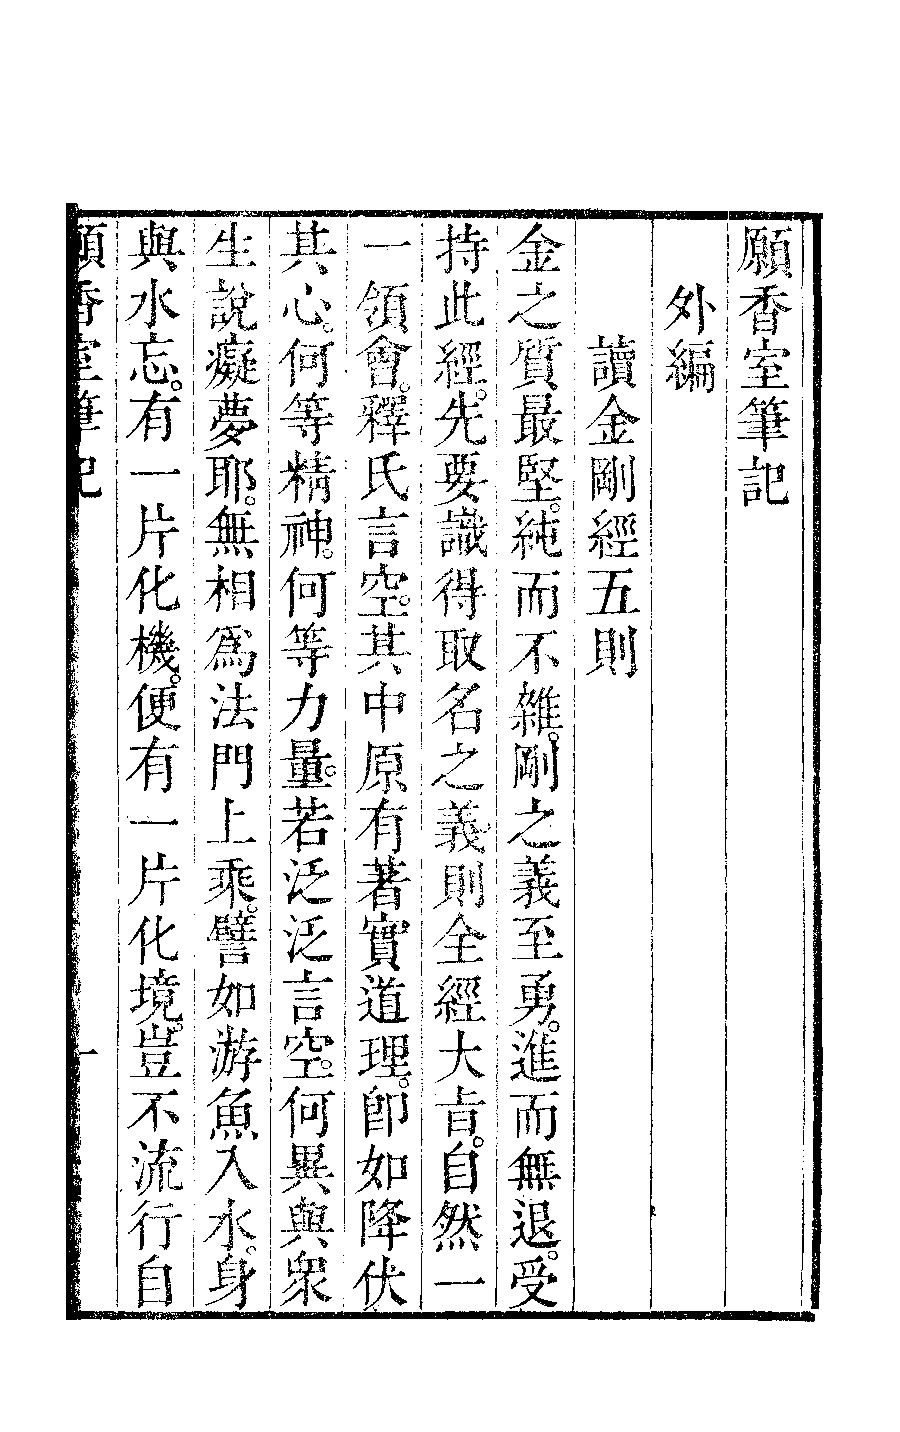 願香室筆記
外編
讀金剛經五則
金之質最堅。純而不雜。剛之義至勇。進而無退。受
持此經。先要識得取名之義則全經大㫖。自然一
一領會。釋氏言空。其中原有著實道理。卽如降伏
其心。何等精神。何等力量。若泛泛言空。何異與衆
生說癡夢耶。無相爲法門上乘。譬如游魚入水。身
與水忘。有一片化機。便有一片化境。豈不流行自
願香室筆記
一